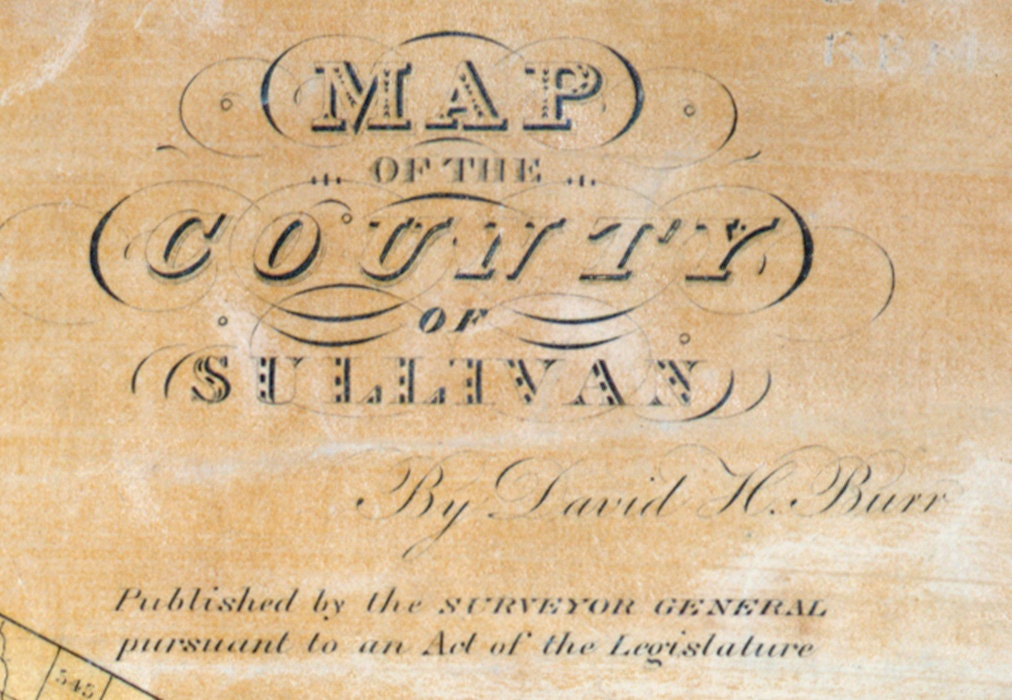 MAP
OF THE
COUNTY
OF
SULLIVAN
By David H. Burr
Published by the SURVEYOR GENERAL
pursuant to an Act of the Legislature
545